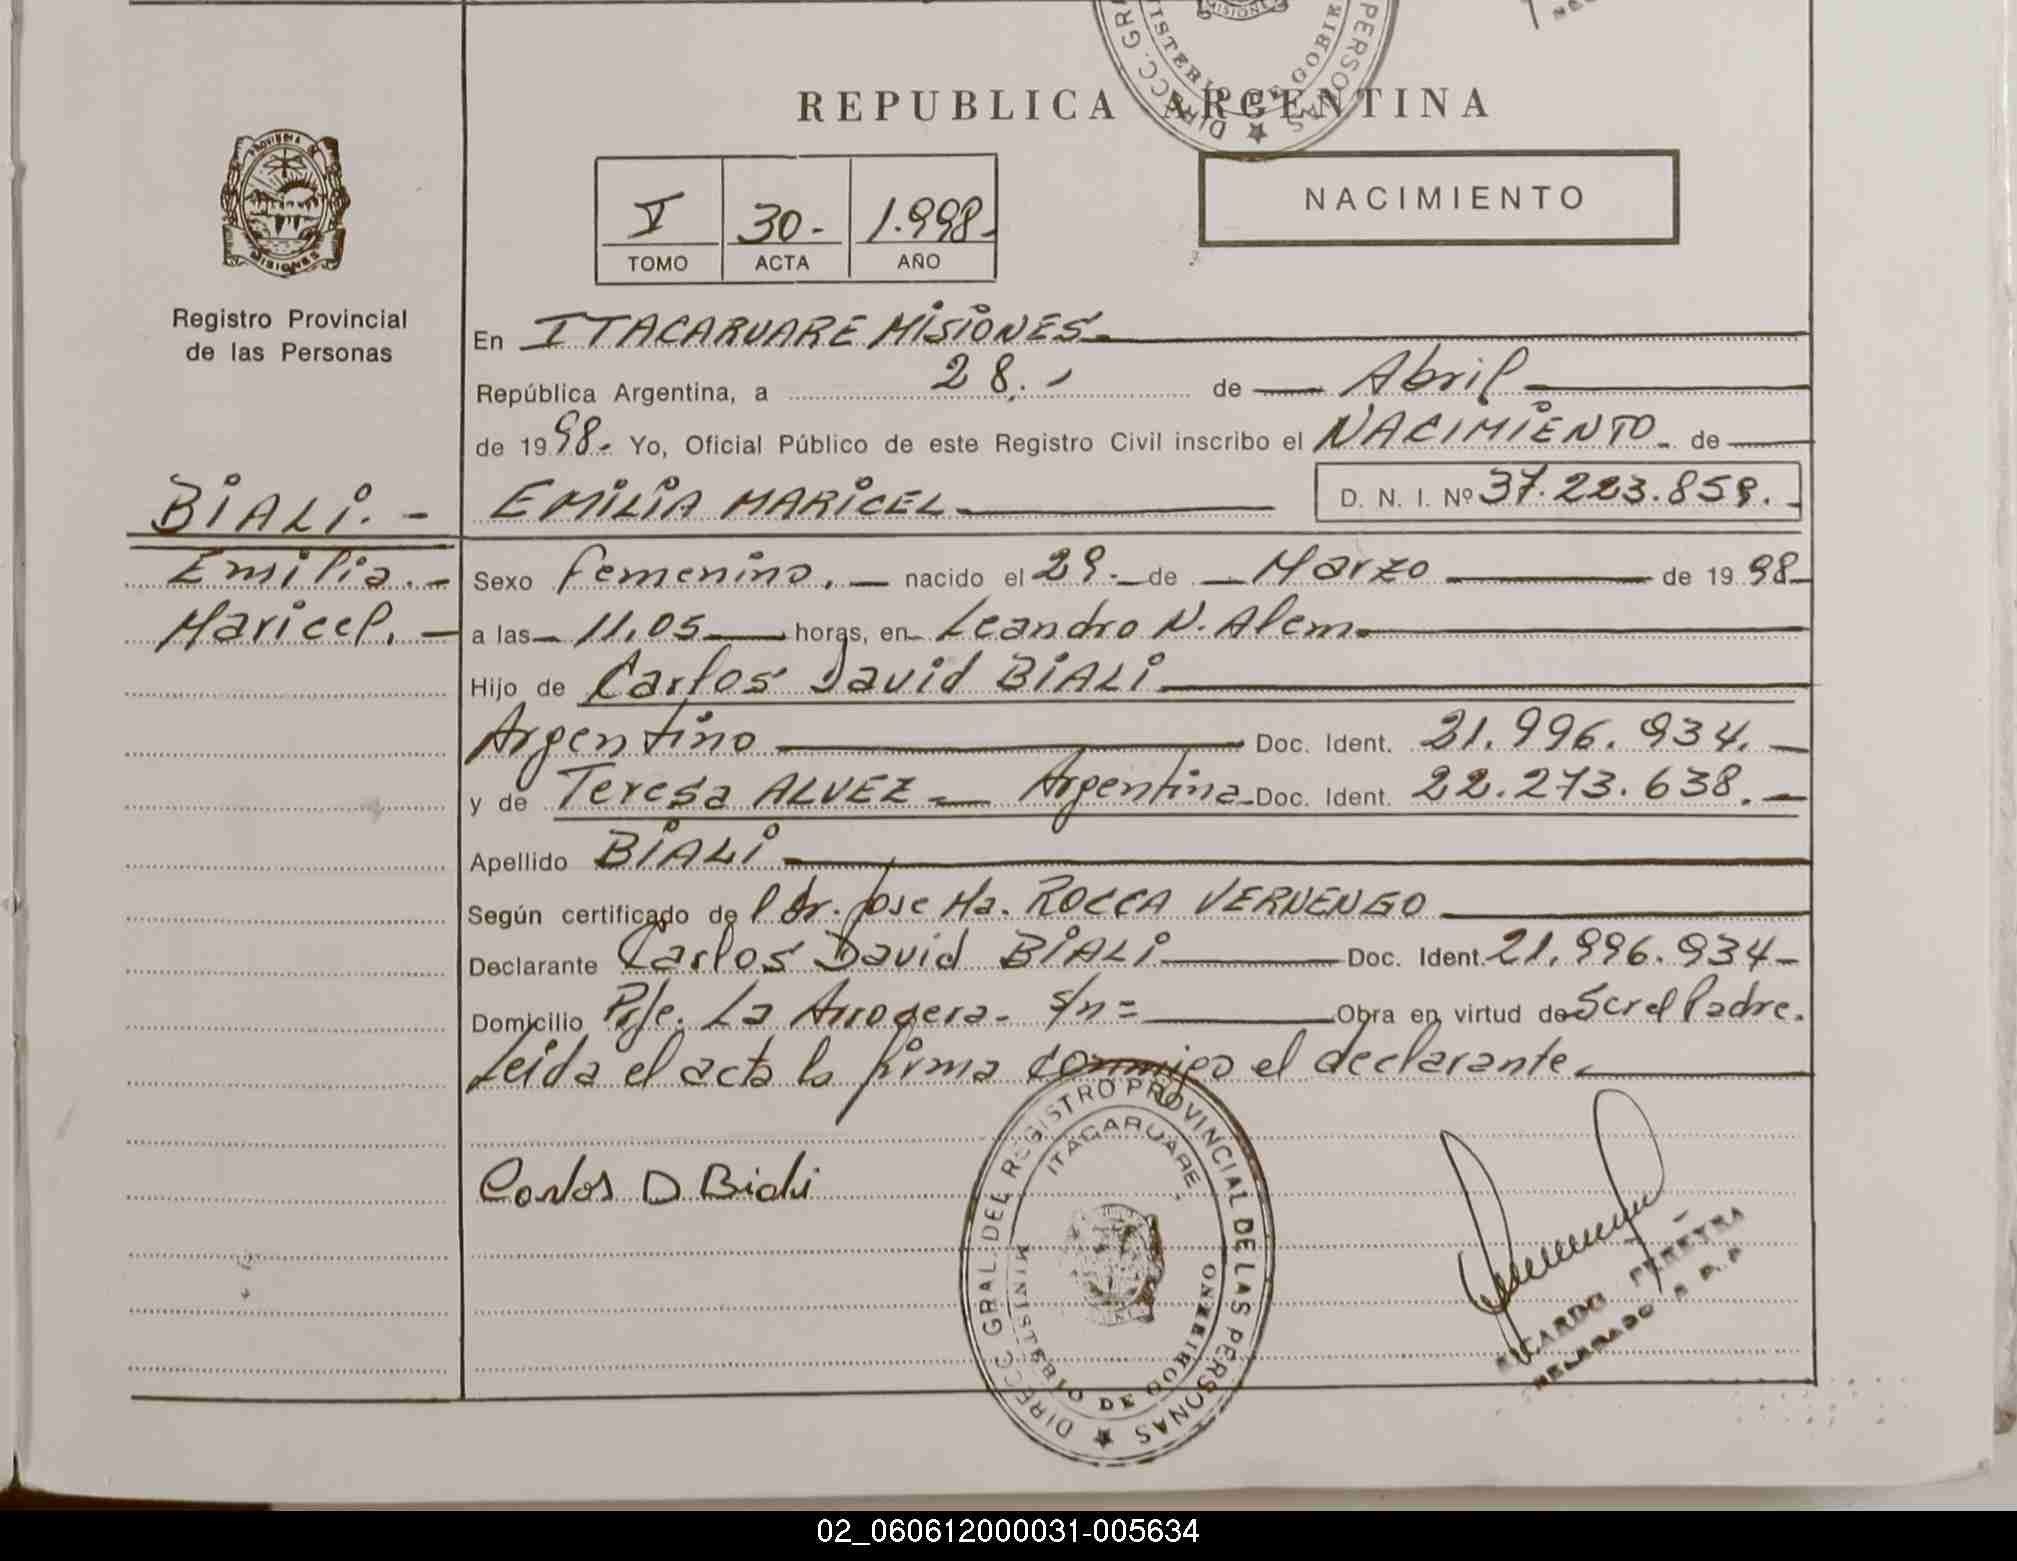 REPUBLICA ARGENTINA
PROVINCIA DE
MISIONES
Registro Provincial
de las Personas
I 30.- 1.998.-
TOMO ACTA AÑO
NACIMIENTO
En ITACARUARE MISIONES.-
República Argentina, a 28.- de Abril
de 1998.- Yo, Oficial Público de este Registro Civil inscribo el NACIMIENTO.- de
BIALI.-
EMILIA MARICEL.- D. N. I. Nº 37.223.859.-
Emilia.-
Maricel.-
Sexo femenino.- nacido el 29.- de Marzo de 1998
a las 11,05 horas, en Leandro N. Alem.
Hijo de Carlos David BIALI
Argentino Doc. Ident. 21.996.934.-
y de Teresa ALVEZ.- Argentina.- Doc. Ident. 22.273.638.-
Apellido BIALI
Según certificado del Dr. Jose Ma. ROCCA VERNENGO
Declarante Carlos David BIALI Doc. Ident. 21.996.934-
Domicilio Pje. La Arrogera- s/n= Obra en virtud de Ser el Padre.
Leida el acta la firma conmigo el declarante.
Carlos D Biali
DIRECC. GRAL. DEL REGISTRO PROVINCIAL DE LAS PERSONAS
ITACARUARE.
MINISTERIO DE GOBIERNO
RICARDO PEREYRA
DELEGADO R. P. P.
02_060612000031-005634